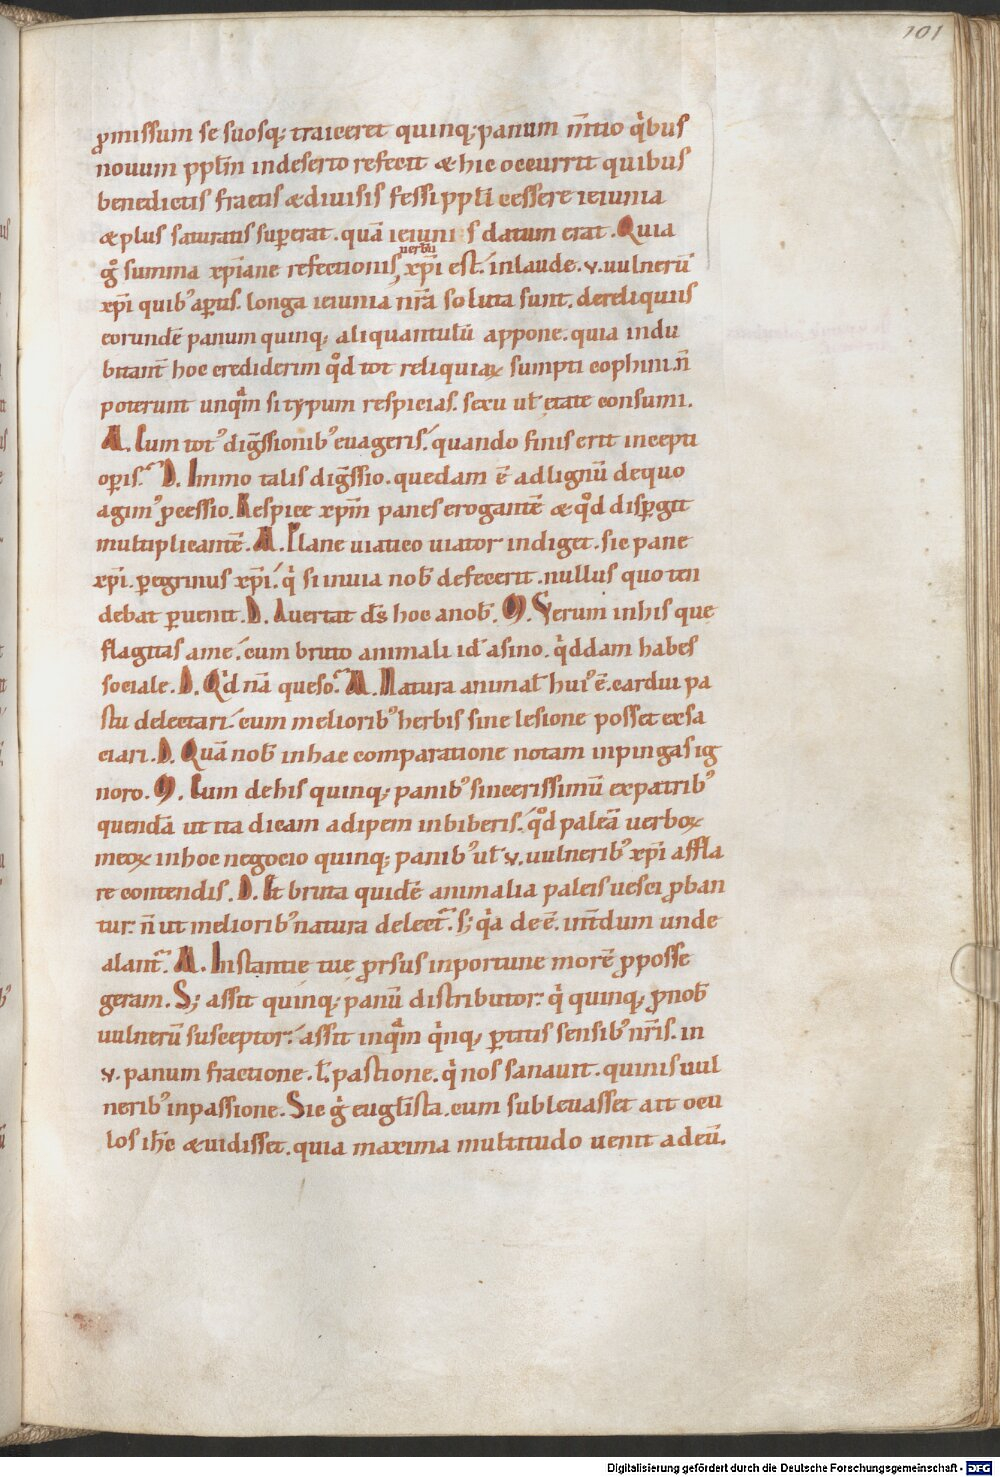 101
ꝓmissum se suosq; traiceret quinq; panum m̅tio qͥbus
nouum ppl̅m indeserto refecit & hic occurrit quibus
benedictis fractis & diuisis fessi ppl̅i cessere ieiunia
& plus saturatis suꝑerat. quā ieiunis datum erat. Quia
gͦ summa xp̅iane refectionis uerbū xp̅i est. inlaude .v. uulnerū
xp̅i quibꝰ aꝑtis. longa ieiunia nr̅a soluta sunt. dereliquiis
eorundē panum quinq; aliquantulū appone. quia indu
bitant̅ hoc crediderim qͦd tot reliquiaꝝ sumpti cophini. n̅
poterunt unqͣm si typum respicias. sexu ul̅ etate consumi.
A. Cum totꝰ dig̅ssionibꝰ euageris. quando finis erit incepti
oꝑis. D. Immo talis dig̅ssio. quedam ē adlignū dequo
agimꝰ ꝓcessio. Respice xp̅m panes erogantē & qͦd disꝑgit
multiplicantē. A. Plane uiatico uiator indiget. sic pane
xp̅i. ꝑegrinus xp̅i. qͥ si inuia nob̅ defecerit. nullus quo ten
debat ꝑuenit. D. Auertat ds̅ hoc anob̅. M. Verum inhis que
flagitas ame. cum bruto animali id̅ asino. qͥddam habes
sociale. D. Qͥd nā queso. A. Natura animal̅ huiꝰ ē. cardui pa
stu delectari. cum melioribꝰ herbis sine lesione posset exsa
ciari. D. Quā nob̅ inhac comparatione notam inpingas ig
noro. M. Cum de his quinq; panibꝰ sincerissimū expatribꝰ
quendā ut ita dicam adipem inbiberis. qͦd paleā uerboꝝ
meoꝝ inhoc negocio quinq; panibꝰ ul̅ .v. uulneribꝰ xp̅i affla
re contendis. D. Et bruta quidē animalia paleis uesci ꝓban
tur. n̅ ut melioribꝰ natura delectᷓ. s; qͥa de ē. int̅dum unde
alant̅. A. Instantie tue ꝓrsus inportune morē ꝓposse
geram. S; assit quinq; panū distributor. qͥ quinq; ꝓnob̅
uulnerū susceptor. assit inqͣm qͥnq; ꝑtitis sensibꝰ nr̅is. in
.v. panum fractione. l̅ pastione. qͥ nos sanauit. quinis uul
neribꝰ inpassione. Sic gͥ eugl̅ista. cum subleuasset ait ocu
los ih̅c & uidisset. quia maxima multitudo uenit adeū.
Digitalisierung gefördert durch die Deutsche Forschungsgemeinschaft - DFG